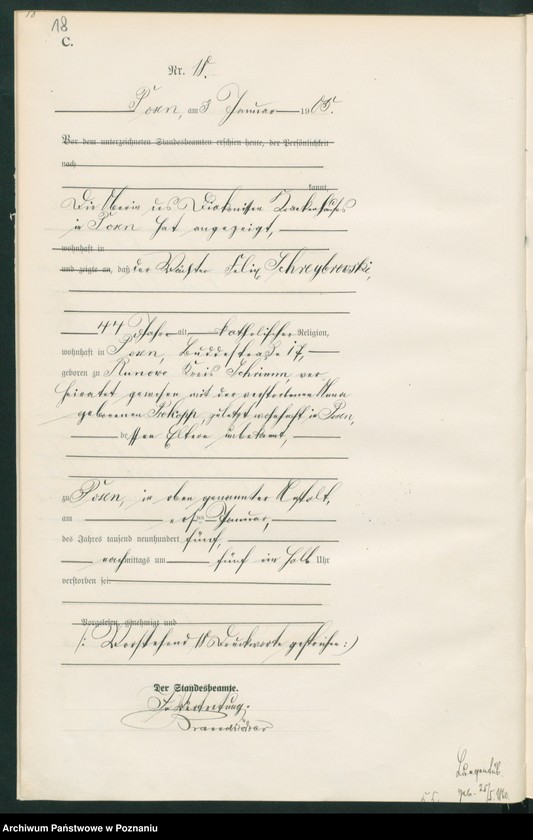 18
C.
Nr. 15.
Posen, am 3 Januar 1905.
Vor dem unterzeichneten Standesbeamten erschien heute, der Persönlichkeit
nach
kannt,
Die Oberin des Diakonissen Krankenhauses
in Posen hat angezeigt,
wohnhaft in
und zeigte an, daß der Wächter Felix
44 Jahre alt, katholischer Religion,
wohnhaft in Posen, 17,
geboren zu Kunowo Kreis Schrimm, ver
heiratet gewesen mit der verstorbenen Anna
geborenen Prokopp, zuletzt wohnhaft in Posen,
dessen Eltern unbekannt,
zu Posen, in oben genannter Anstalt,
am ersten Januar,
des Jahres tausend neunhundert fünf,
nachmittags um fünf ein halb Uhr
verstorben sei
Vorgelesen, genehmigt und
/: Vorstehend 15 Druckworte gestrichen :/
Der Standesbeamte.
In Vertretung.
geb.
Archiwum Państwowe w Poznaniu